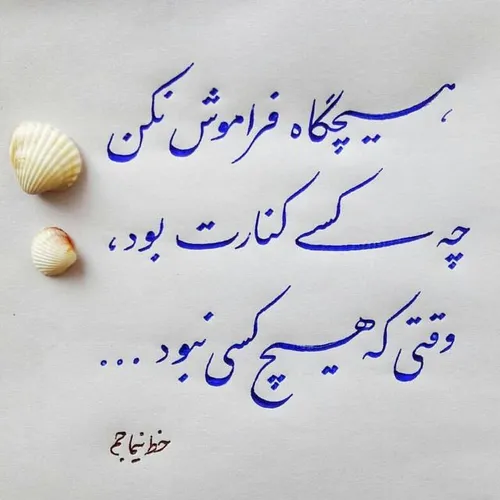 هیچگاه فراموش نکن
چه کسی کنارت بود،
وقتی که هیچ کسی نبود ...
خط نیما جم